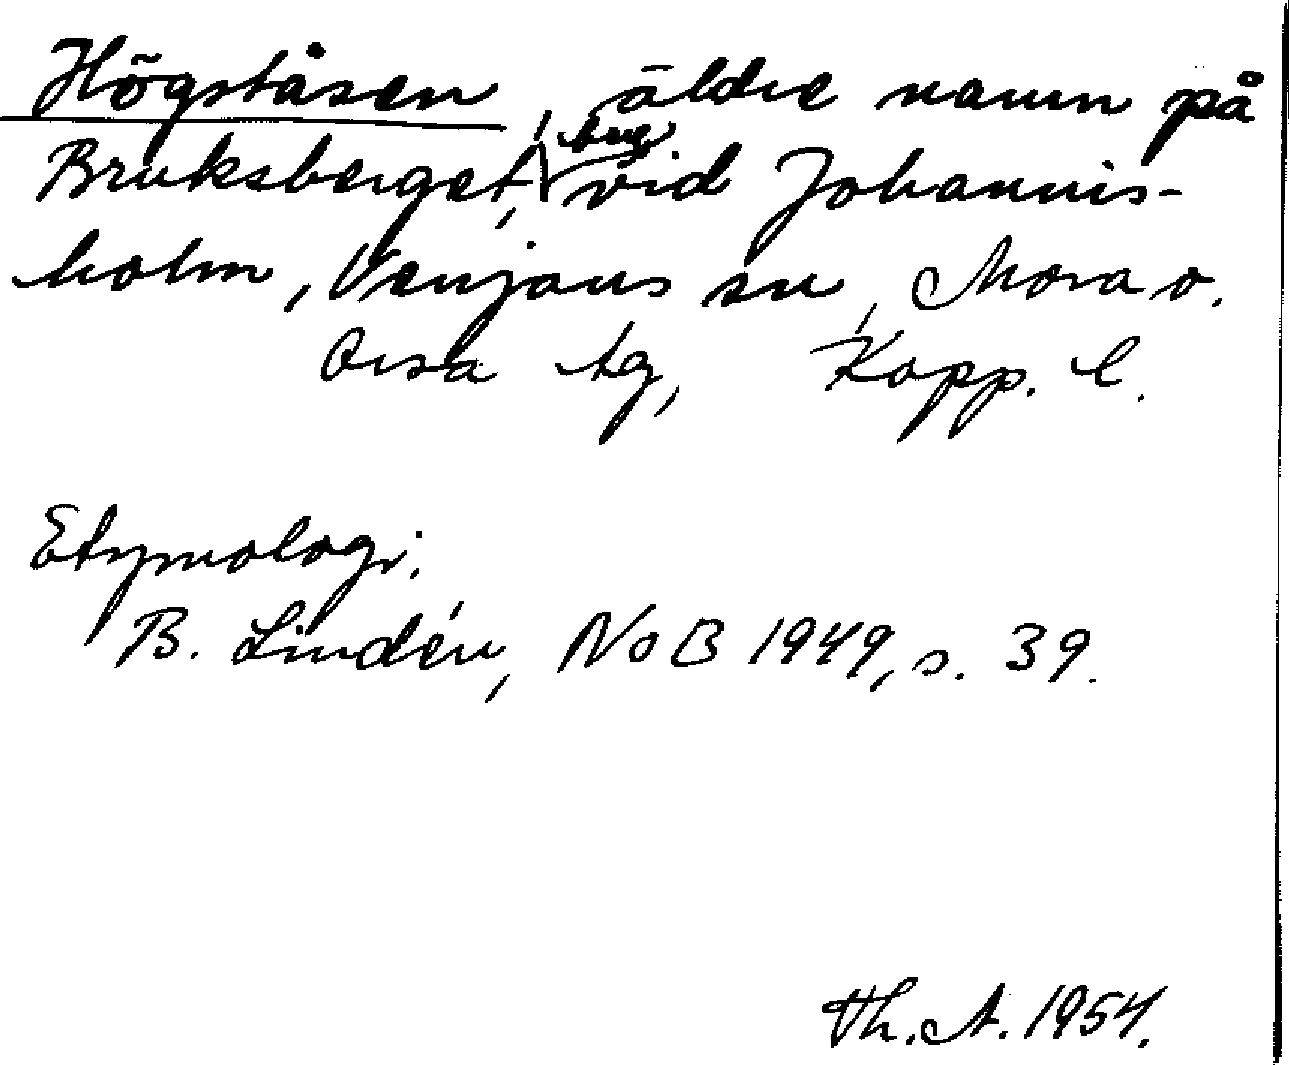 Högståsen, äldre namn på
Bruksberget, berg vid Johannis-
holm, Venjans sn, Mora o.
Orsa tg, Kopp. l.
Etymologi:
B. Lindén, NoB 1949, s. 39.
Th. A. 1954.